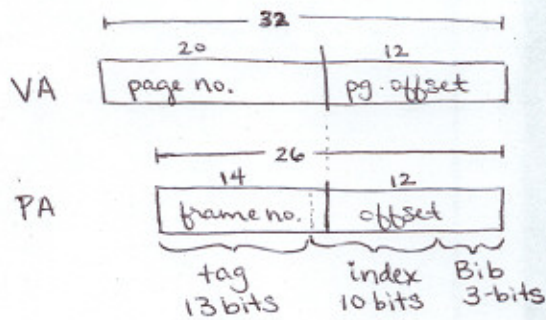 32
20 12
VA page no. pg. offset
26
14 12
PA frame no. offset
tag index Bib
13 bits 10 bits 3-bits